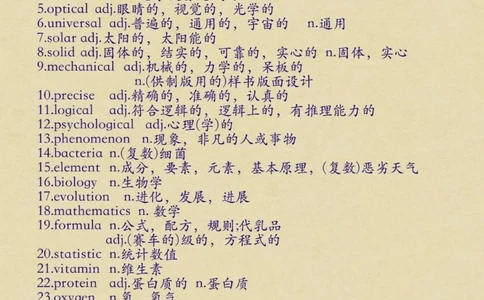 5.optical adj.眼睛的，视觉的，光学的
6.universal adj.普遍的，通用的，宇宙的 n.通用
7.solar adj.太阳的，太阳能的
8.solid adj.固体的，结实的，可靠的，实心的 n.固体，实心
9.mechanical adj.机械的，力学的，呆板的
n.(供制版用的)样书版面设计
10.precise adj.精确的，准确的，认真的
11.logical adj.符合逻辑的，逻辑上的，有推理能力的
12.psychological adj.心理(学)的
13.phenomenon n.现象，非凡的人或事物
14.bacteria n.(复数)细菌
15.element n.成分，要素，元素，基本原理，(复数)恶劣天气
16.biology n.生物学
17.evolution n.进化，发展，进展
18.mathematics n. 数学
19.formula n.公式，配方，规则;代乳品
adj.(赛车的)级的，方程式的
20.statistic n.统计数值
21.vitamin n.维生素
22.protein adj.蛋白质的 n.蛋白质
23.oxygen n.氧，氧气